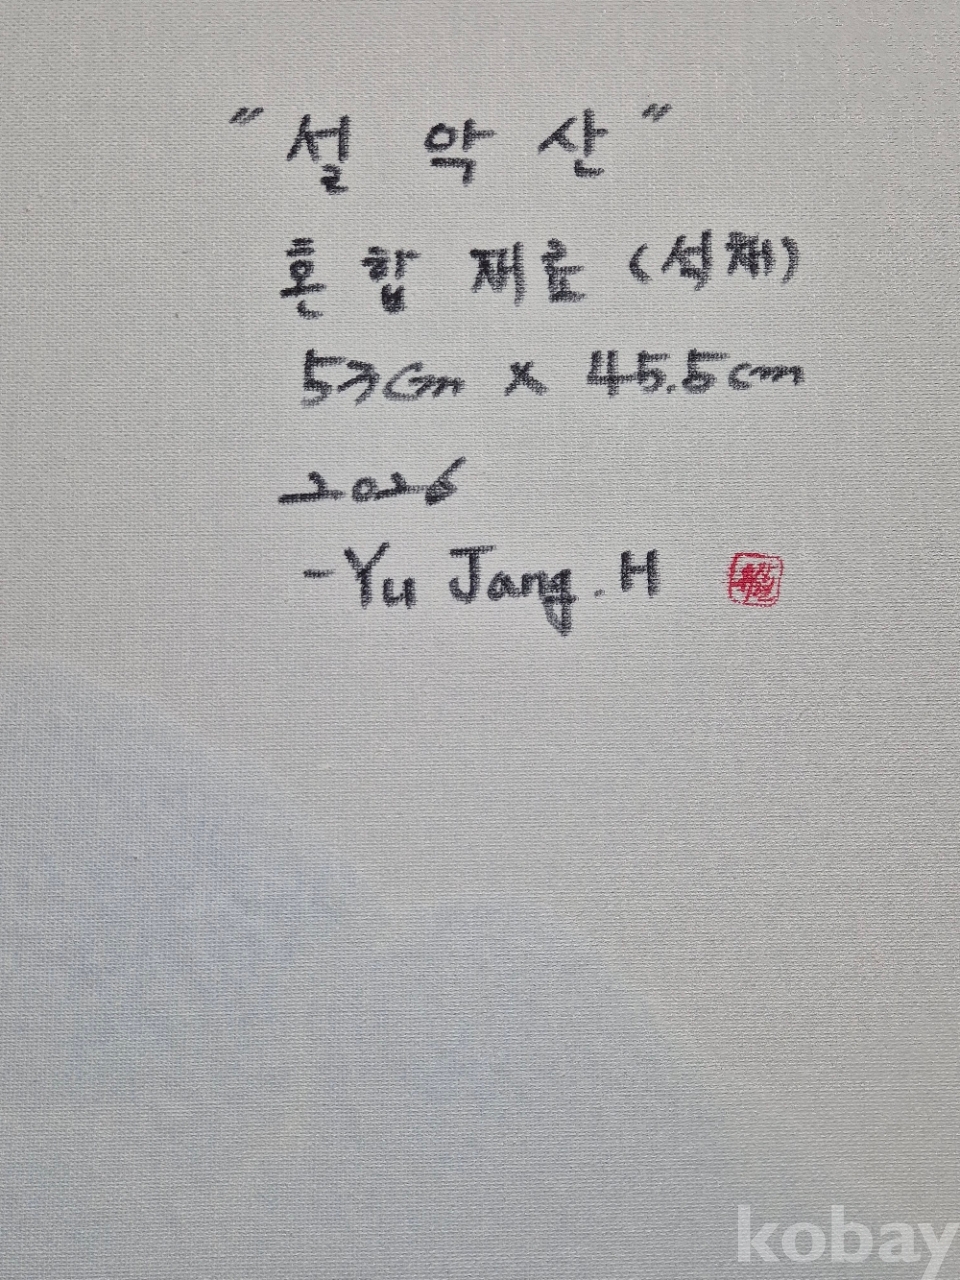 "설 악 산"
혼 합 재료 (석채)
53cm x 45.5cm
2026
-Yu Jang.H
kobay